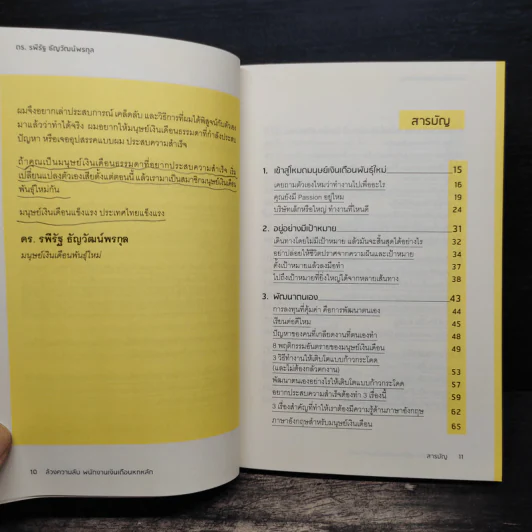 ดร. รพีรัฐ ธัญวัฒน์พรกุล
ผมจึงอยากเล่าประสบการณ์ เคล็ดลับ และวิธีการที่ผมได้พิสูจน์กับตัวเอง
มาแล้วว่าทำได้จริง ผมอยากให้มนุษย์เงินเดือนธรรมดาที่กำลังประสบ
ปัญหา หรือเจออุปสรรคแบบผม ประสบความสำเร็จ
ถ้าคุณเป็นมนุษย์เงินเดือนธรรมดาที่อยากประสบความสำเร็จ
เปลี่ยนแปลงตัวเองเสียตั้งแต่ตอนนี้ แล้วเรามาเป็นสมาชิกมนุษย์เงินเดือน
พันธุ์ใหม่กัน
มนุษย์เงินเดือนแข็งแรง ประเทศไทยแข็งแรง
ดร. รพีรัฐ ธัญวัฒน์พรกุล
มนุษย์เงินเดือนพันธุ์ใหม่
10 ล้วงความลับ พนักงานเงินเดือนหกหลัก
สารบัญ
1. เข้าสู่โหมดมนุษย์เงินเดือนพันธุ์ใหม่ 15
เคยถามตัวเองไหมว่าทำงานไปเพื่ออะไร 16
คุณยังมี Passion อยู่ไหม 19
บริษัทเล็กหรือใหญ่ ทำงานที่ไหนดี 24
2. อยู่อย่างมีเป้าหมาย 31
เดินทางโดยไม่มีเป้าหมาย แล้วมันจะสิ้นสุดได้อย่างไร 32
อย่าปล่อยให้ชีวิตปราศจากความฝันและเป้าหมาย 34
ตั้งเป้าหมายแล้วลงมือทำ 37
ไปถึงเป้าหมายที่ยิ่งใหญ่ได้จากหลายเส้นทาง 38
3. พัฒนาตนเอง 43
การลงทุนที่คุ้มค่า คือการพัฒนาตนเอง 44
เรียนต่อดีไหม 45
ปัญหาของคนที่เกลียดงานที่ตนเองทำ 48
8 พฤติกรรมอันตรายของมนุษย์เงินเดือน 49
3 วิธีทำงานให้เติบโตแบบก้าวกระโดด
(และไม่ต้องกลัวตกงาน) 53
พัฒนาตนเองอย่างไรให้เติบโตแบบก้าวกระโดด 57
อยากประสบความสำเร็จต้องทำ 3 เรื่องนี้ 59
3 เรื่องสำคัญที่ทำให้เราต้องมีความรู้ด้านภาษาอังกฤษ 62
ภาษาอังกฤษสำหรับมนุษย์เงินเดือน 65
สารบัญ 11